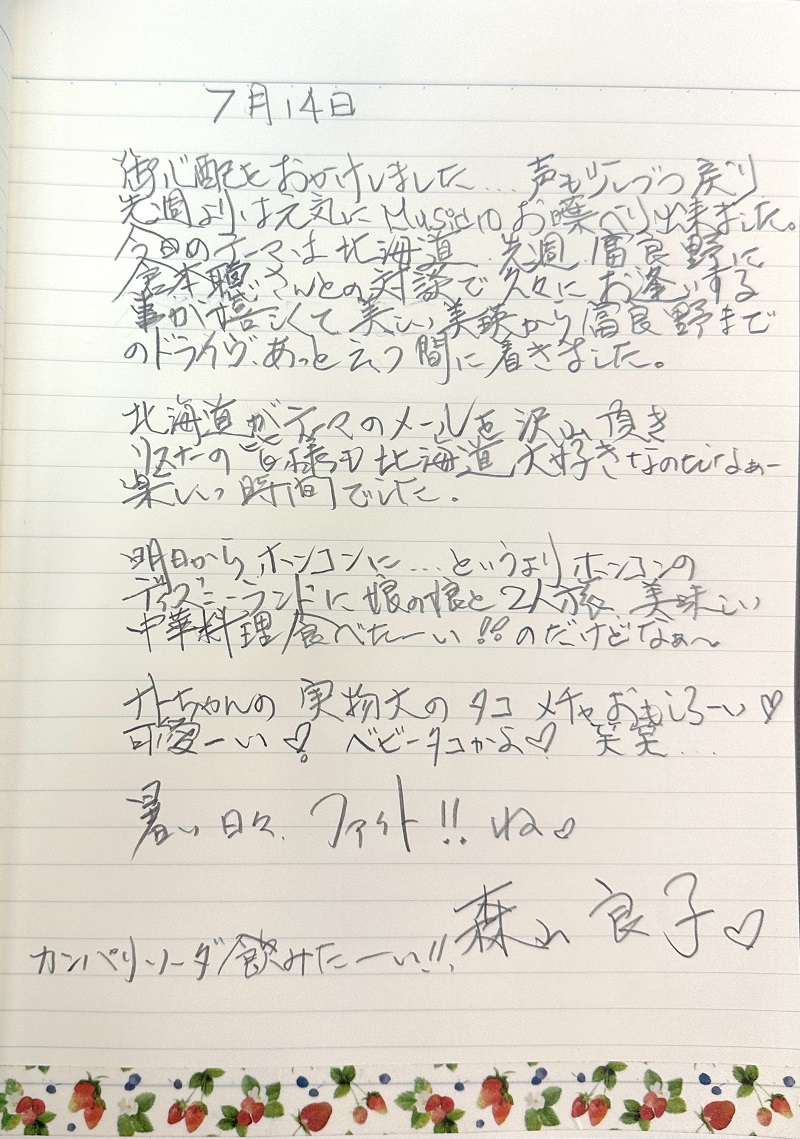 7月14日
御心配をおかけしました... 声も少しづつ戻り
先週よりは元気にMusic10お喋べり出来ました。
今日のテーマは北海道 先週 富良野に
倉本聰さんとの対談で久々にお逢いする
事が嬉しくて美しい美瑛から富良野まで
のドライヴ、あっと云う間に着きました。
北海道がテーマのメールを沢山頂き
リスナーの皆様も北海道大好きなのだなぁー
楽しい時間でした.
明日からホンコンに...というよりホンコンの
ディズニーランドに娘の娘と2人旅、美味しい
中華料理食べたーい!!のだけどなぁ〜
ちゃんの 実物大の タコ メチャおもしろーい♡
可愛ーい♡! ベビータコかよ♡ 笑笑...
暑い日々、ファイト!! ね♡
森山良子♡
カンパリソーダ飲みたーい!!